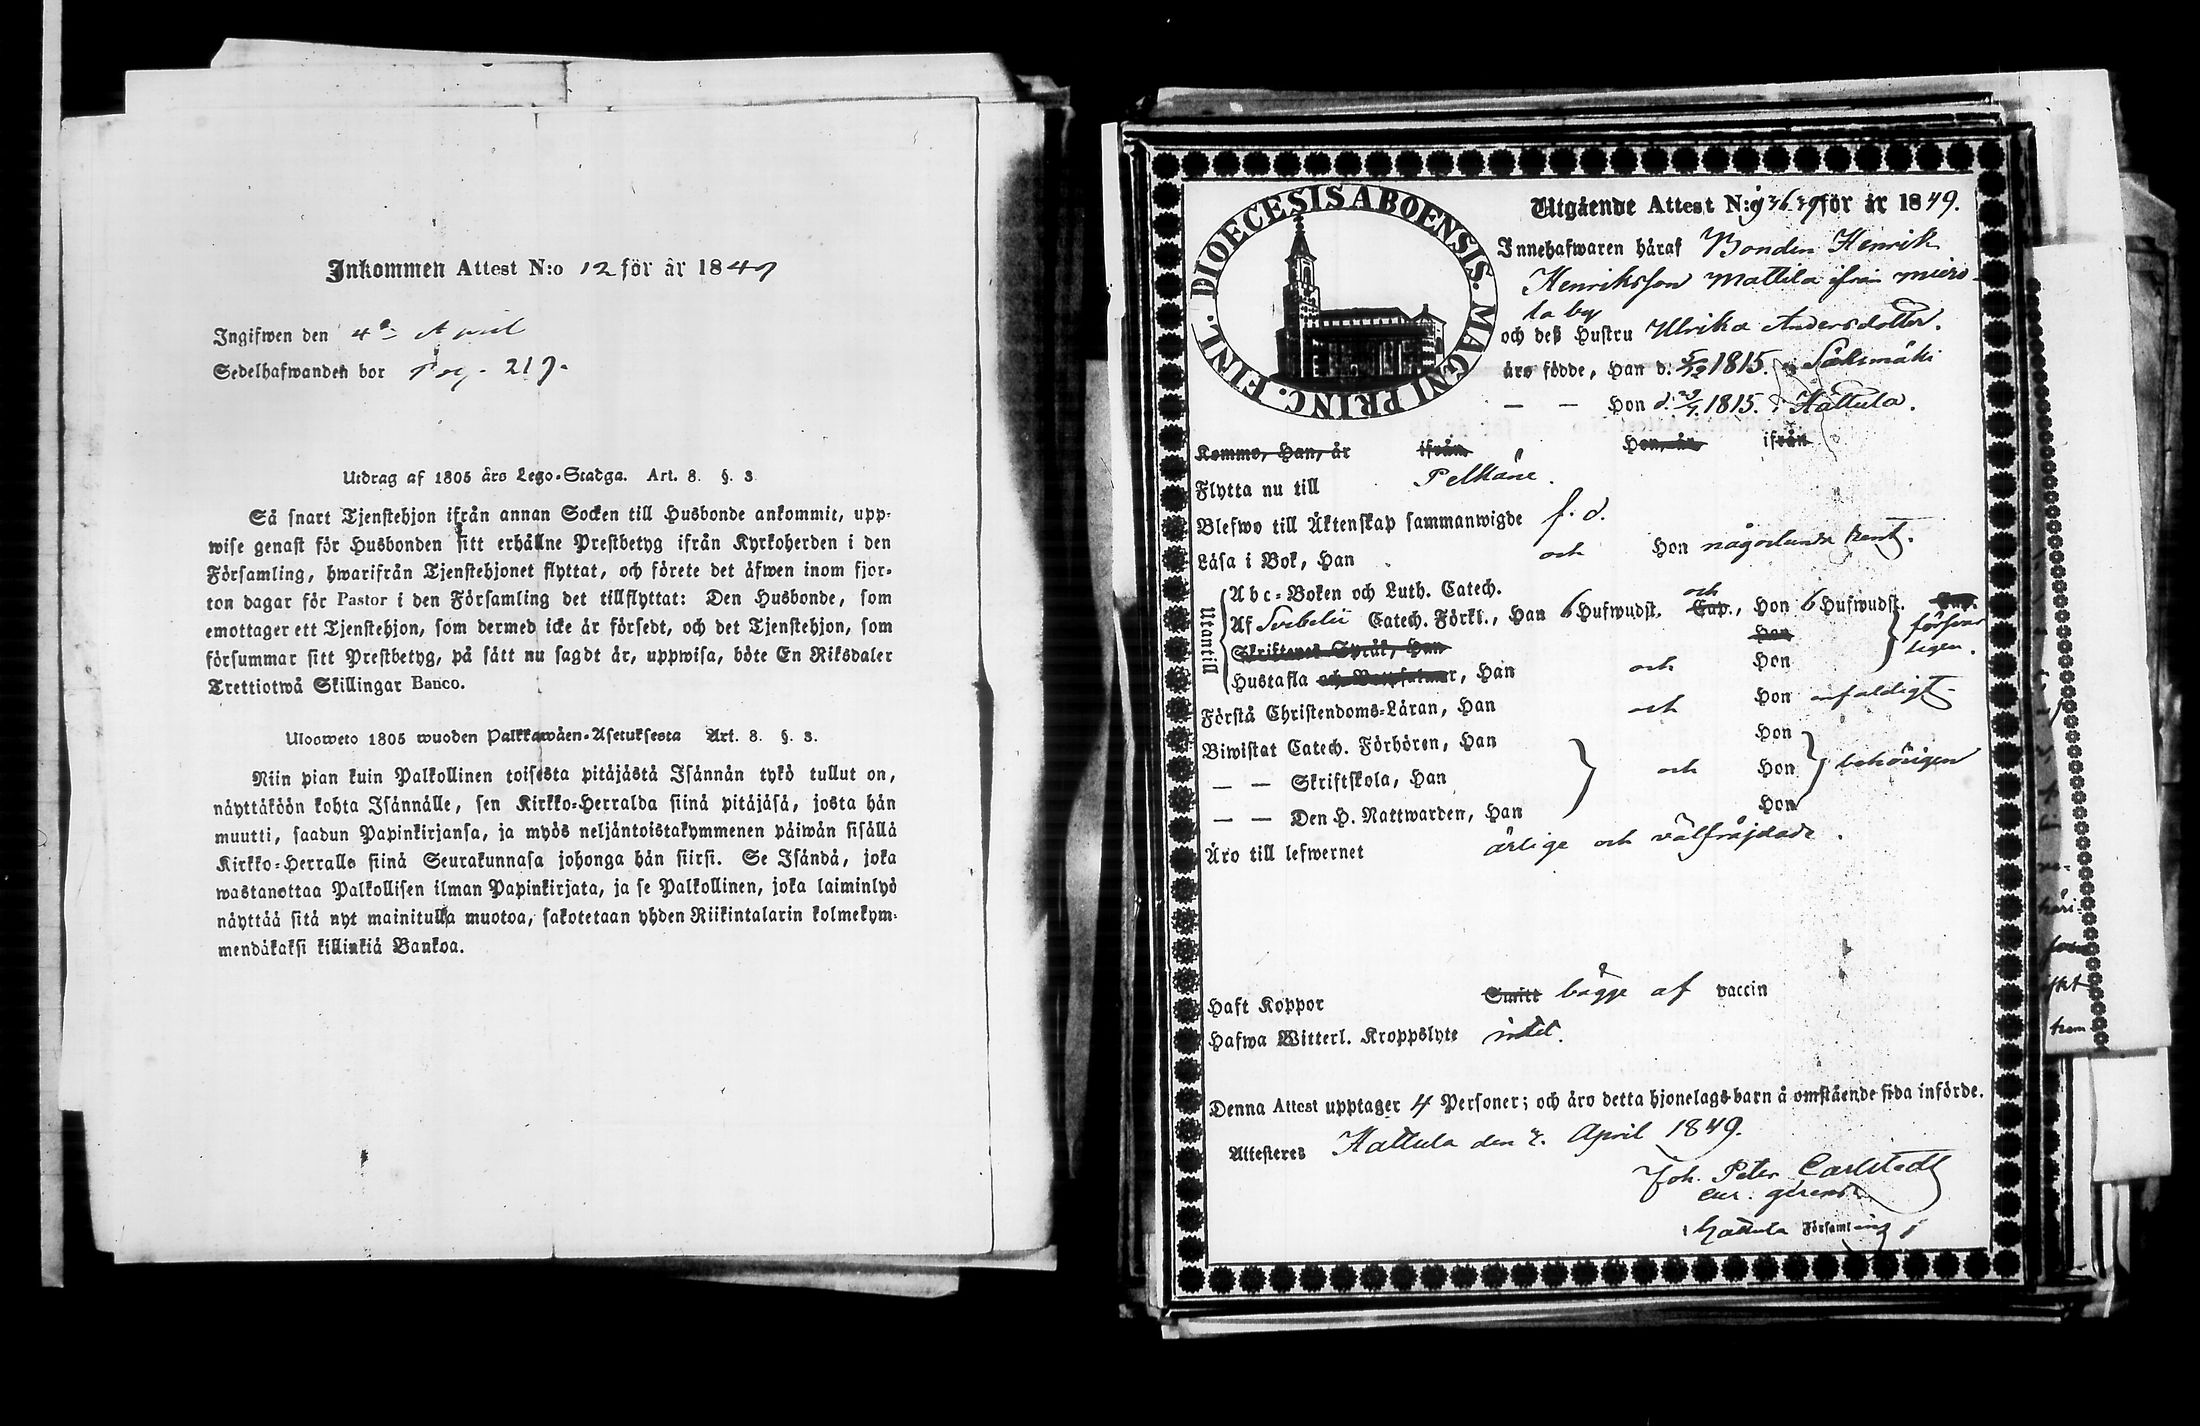 Inkommen Attest N:o 12 för år 1847
Ingifwen den 4de April
Sedelhafwanden bor Pag. 217.
Utdrag af 1805 års Lego-Stadga. Art. 8. §. 3.
Så snart Tjenstehjon ifrån annan Socken till Husbonde ankommit, upp-
wise genast för Husbonden sitt erhållne Prestbetyg ifrån Kyrkoherden i den
Församling, hwarifrån Tjenstehjonet flyttat, och förete det äfwen inom fjor-
ton dagar för Pastor i den Församling det tillflyttat: Den Husbonde, som
emottager ett Tjenstehjon, som dermed icke är försedt, och det Tjenstehjon, som
försummar sitt Prestbetyg, på sätt nu sagdt är, uppwisa, böte En Riksdaler
Trettiotwå Skillingar Banco.
Uloosweto 1805 wuoden Palkkawäen-Asetuksesta Art. 8. §. 3.
Niin pian kuin Palkollinen toisesta pitäjästä Isännän tykö tullut on,
näyttäköön kohta Isännälle, sen Kirkko-Herralda siinä pitäjäsä, josta hän
muutti, saadun Papinkirjansa, ja myös neljäntoistakymmenen päiwän sisällä
Kirkko-Herralle siinä Seurakunnasa johonga hän siirsi. Se Isändä, joka
wastanottaa Palkollisen ilman Papinkirjata, ja se Palkollinen, joka laiminlyö
näyttää sitä nyt mainitulla muotoa, sakotetaan yhden Riikintalarin kolmekym-
mendäkaksi killinkiä Bankoa.
DIOECESIS ABOENSIS. MAGNI PRINC. FINL.
Utgående Attest N:o för år 1849.
Innehafwaren häraf Bonden Henrik
Henriksson Mattila ifrån Miero-
la by
och deß Hustru Ulrika Andersdotter.
äro födde, Han d. 5/12 1815. i Sääksmäki
— — Hon d. 1815. i Hattula.
Komme, Han, år ifrån Hon, år ifrån
Flytta nu till Pelkäne.
Blefwo till Äktenskap sammanwigde f. d.
Läsa i Bok, Han och Hon någorlunda rent.
Utantill
Abc-Boken och Luth. Catech.
Af Svebelii Catech. Förkl., Han 6 Hufwudst. och Cap., Hon 6 Hufwudst. Cap.
försvar-
ligen.
Skriftenes Språk, Han Hon
Hustafla och Botpsalmer, Han och Hon
Förstå Christendoms-Läran, Han och Hon enfaldigt.
Biwistat Catech. Förhören, Han Hon
— — Skriftskola, Han och Hon behörigen
— — Den H. Nattwarden, Han Hon
Äro till lefwernet ärlige och välfräjdade.
Haft Koppor Smitt bägge af vaccin
Hafwa Witterl. Kroppslyte intet.
Denna Attest upptager 4 Personer; och äro detta hjonelags barn å omstående sida införde.
Attesteres Hattula den 2. April 1849.
Joh. Peter Carlstedt
cur. gerens
i Hattula Församling